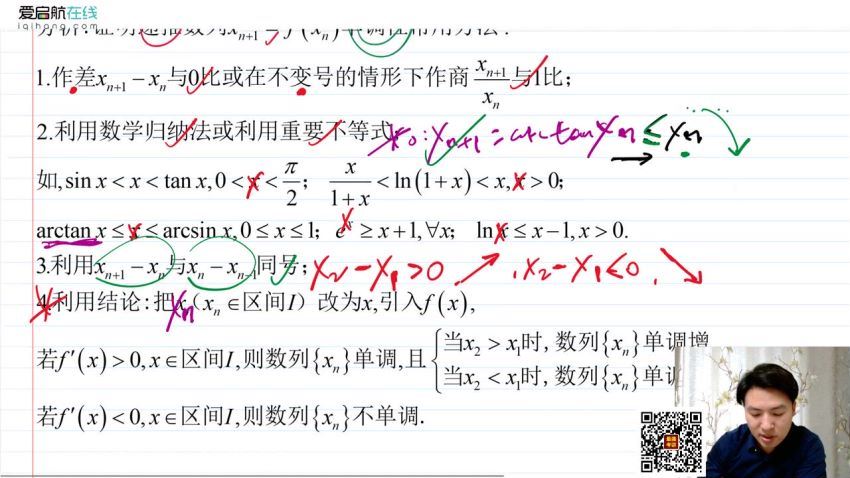 爱启航在线
iqihang.com
分析:证明递推数列xₙ₊₁ = f(xₙ)单调性常用方法:
1.作差xₙ₊₁ − xₙ与0比或在不变号的情形下作商 xₙ₊₁/xₙ 与1比;
2.利用数学归纳法或利用重要不等式, xₙ₊₁ = arctan xₙ ≤ xₙ
如,sin x < x < tan x, 0 < x < π/2; x/(1+x) < ln(1+x) < x, x > 0;
arctan x ≤ x ≤ arcsin x, 0 ≤ x ≤ 1; eˣ ≥ x+1, ∀x; ln x ≤ x−1, x > 0.
3.利用xₙ₊₁ − xₙ与xₙ − xₙ₋₁同号; x₂ − x₁ > 0 , x₂ − x₁ < 0
4.利用结论:把xₙ(xₙ ∈区间I)改为x,引入f(x),
若f′(x) > 0, x∈区间I,则数列{xₙ}单调,且
当x₂ > x₁时,数列{xₙ}单调增
当x₂ < x₁时,数列{xₙ}单调
若f′(x) < 0, x∈区间I,则数列{xₙ}不单调.